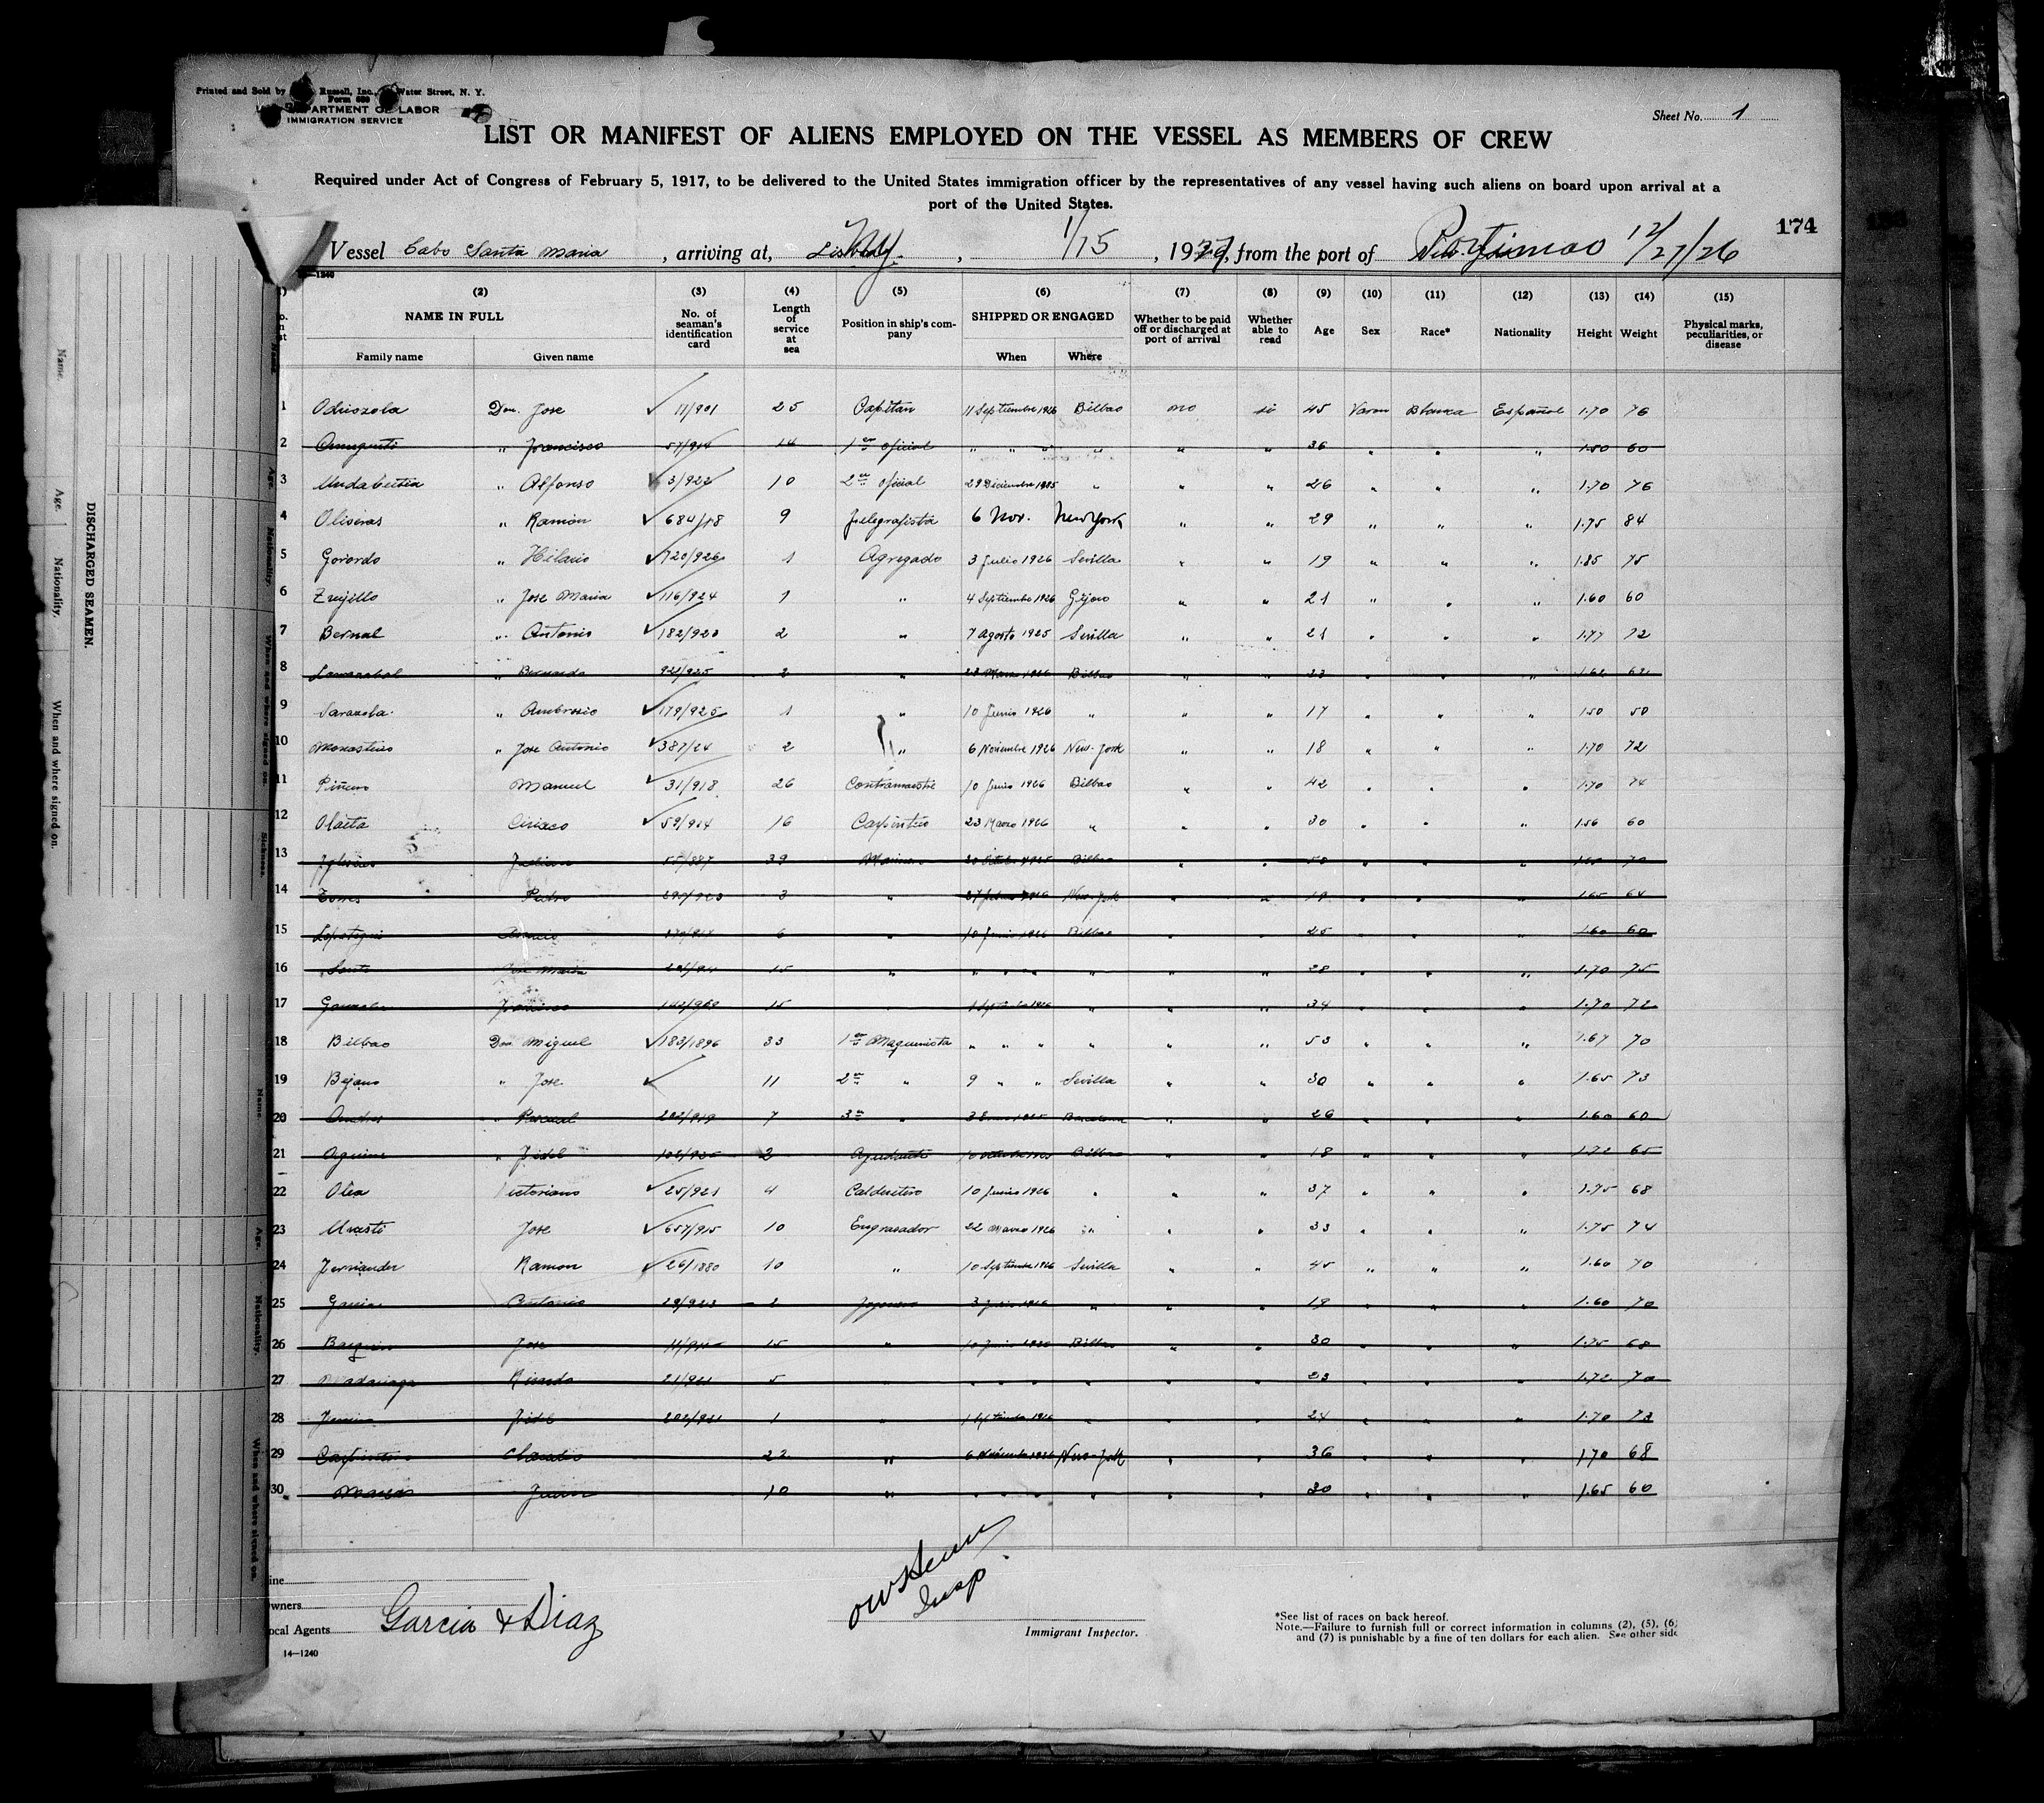 Printed and Sold by Russell, Inc., Water Street, N. Y.
Form 689
DEPARTMENT OF LABOR
IMMIGRATION SERVICE
Sheet No. 1
LIST OR MANIFEST OF ALIENS EMPLOYED ON THE VESSEL AS MEMBERS OF CREW
Required under Act of Congress of February 5, 1917, to be delivered to the United States immigration officer by the representatives of any vessel having such aliens on board upon arrival at a
port of the United States.
174
Vessel Cabo Santa Maria, arriving at, NY, 1/15, 1927, from the port of Portimao 12/27/26
14-1240
(2) (3) (4) (5) (6) (7) (8) (9) (10) (11) (12) (13) (14) (15)
NAME IN FULL
Family name Given name
No. of seaman's identification card
Length of service at sea
Position in ship's company
SHIPPED OR ENGAGED
When Where
Whether to be paid off or discharged at port of arrival
Whether able to read
Age Sex Race* Nationality Height Weight
Physical marks, peculiarities, or disease
1 Odriozola Don Jose 11/901 25 Capitan 11 Septiembre 1926 Bilbao no si 45 Varon Blanca Español 1.70 76
2 " Francisco 57/914 14 1er oficial " " " " " " 36 " " " 1.50 60
3 " Alfonso 3/922 10 2º oficial 29 Diciembre 1925 " " " 26 " " " 1.70 76
4 Oliveras " Ramón 684/18 9 Telegrafista 6 Nov. New York " " 29 " " " 1.75 84
5 Gorordo " Hilario 720/926 1 Agregado 3 Julio 1926 Sevilla " " 19 " " " 1.85 75
6 Zrujillo " Jose Maria 116/924 1 " 4 Septiembre 1926 Gijon " " 21 " " " 1.60 60
7 Bernal " Antonio 182/923 2 " 7 Agosto 1925 Sevilla " " 21 " " " 1.77 72
8 " Bernardo 921/925 2 " 23 Marzo 1926 Bilbao " " 23 " " " 1.62 62
9 Sarazola " Ambrosio 179/925 1 " 10 Junio 1926 " " " 17 " " " 1.50 50
10 Monasterio " Jose Antonio 387/24 2 " 6 Noviembre 1926 New-York " " 18 " " " 1.70 72
11 Piñeiro Manuel 31/918 26 Contramaestre 10 Junio 1926 Bilbao " " 42 " " " 1.70 74
12 Olaeta Ciriaco 59/914 16 Carpintero 23 Marzo 1926 " " " 30 " " " 1.56 60
13 Iglesias Julian 55/887 39 Marinero Bilbao " " 58 " " " 1.60 70
14 Torres Pedro 290/923 3 " 27 New-York " " 19 " " " 1.65 64
15 170/917 6 " 10 Junio 1926 Bilbao " " 25 " " " 1.60 60
16 Jose Maria 15 " " " " " " " 28 " " " 1.70 75
17 Gonzalez Francisco 15 " 1 Septiembre 1926 " " " 34 " " " 1.70 72
18 Bilbao Don Miguel 183/1896 33 1er Maquinista " " " " " " 53 " " " 1.67 70
19 Bejano " Jose 11 2º " 9 " " Sevilla " " 30 " " " 1.65 73
20 Andres " Pascual 202/919 7 3er " Barcelona " " 26 " " " 1.60 60
21 Aguirre " Fidel 2 Ayudante Bilbao " " 18 " " " 1.72 65
22 Olea Victoriano 25/921 4 Calderetero 10 Junio 1926 " " " 37 " " " 1.75 68
23 Jose 657/915 10 Engrasador 22 Marzo 1926 " " " 33 " " " 1.75 74
24 Fernander Ramon 26/1880 10 " 10 Septiembre 1926 Sevilla " " 45 " " " 1.60 70
25 Garcia Antonio 29/923 2 Fogonero 3 Julio 1926 " " " 19 " " " 1.60 70
26 Jose 15 " 10 Junio 1926 Bilbao " " 30 " " " 1.75 68
27 Madariaga Ricardo 21/921 5 " " " " " " " 23 " " " 1.72 70
28 Fidel 202/921 1 " 1 Septiembre 1926 " " " 24 " " " 1.70 73
29 Carpintero Claudio 22 " 6 Noviembre 1926 New-York " " 36 " " " 1.70 68
30 10 " " " " " " " 30 " " " 1.65 60
Owners
Local Agents Garcia & Diaz
14-1240
Insp.
Immigrant Inspector.
*See list of races on back hereof.
Note.—Failure to furnish full or correct information in columns (2), (5), (6)
and (7) is punishable by a fine of ten dollars for each alien. See other side
DISCHARGED SEAMEN.
Name. Age. Nationality. When and where signed on.
Name. Age. Nationality. When and where signed on. Sickness.
Name. Age. Nationality. When and where signed on.